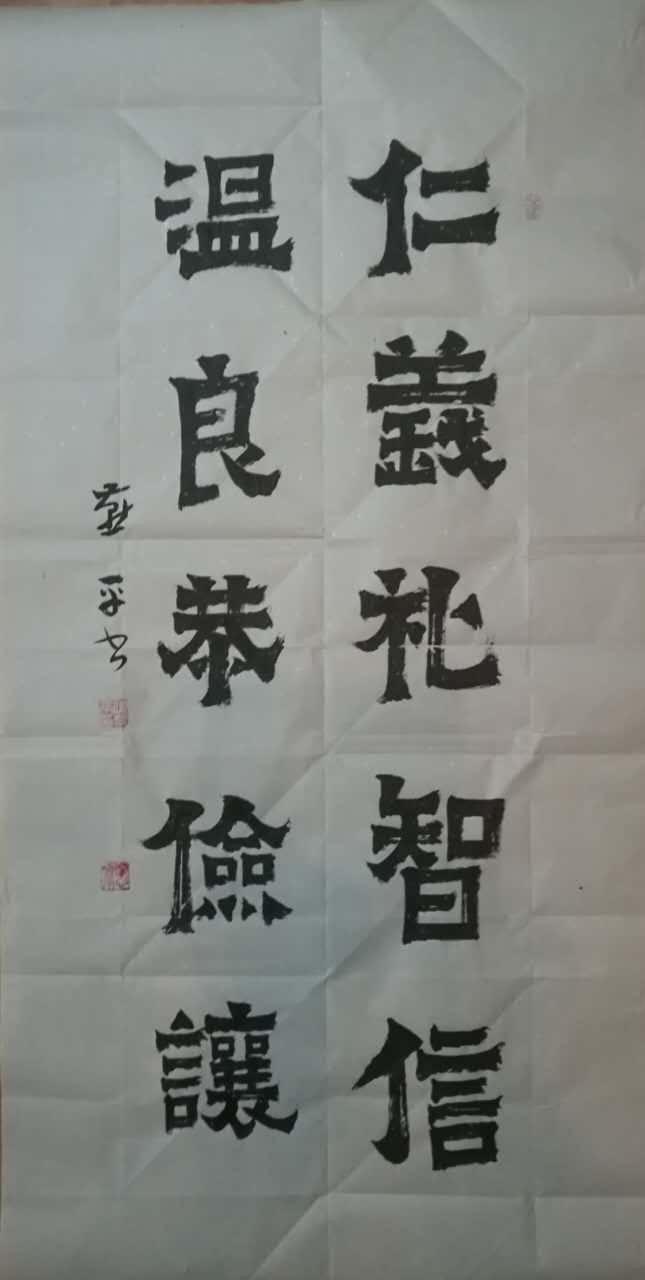 仁義礼智信
温良恭儉讓
燕平书